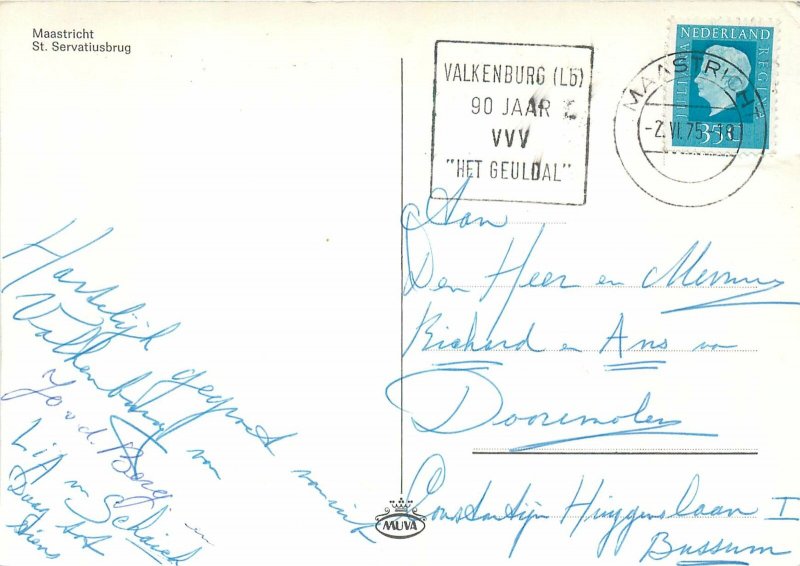 Maastricht
St. Servatiusbrug
VALKENBURG (Lb)
90 JAAR
VVV
"HET GEULDAL"
MAASTRICHT
-2.VI.75-18
NEDERLAND
JULIANA REGINA
35
Aan
Den Heer en Mevrouw
Richard en Ans van
Dooremolen
Constantijn Huygenslaan 1
Bussum
Hartelijk gegroet vanuit
Valkenburg van
Jo v.d. Berg en
v Schaick
Daag tot
ziens
MUVA